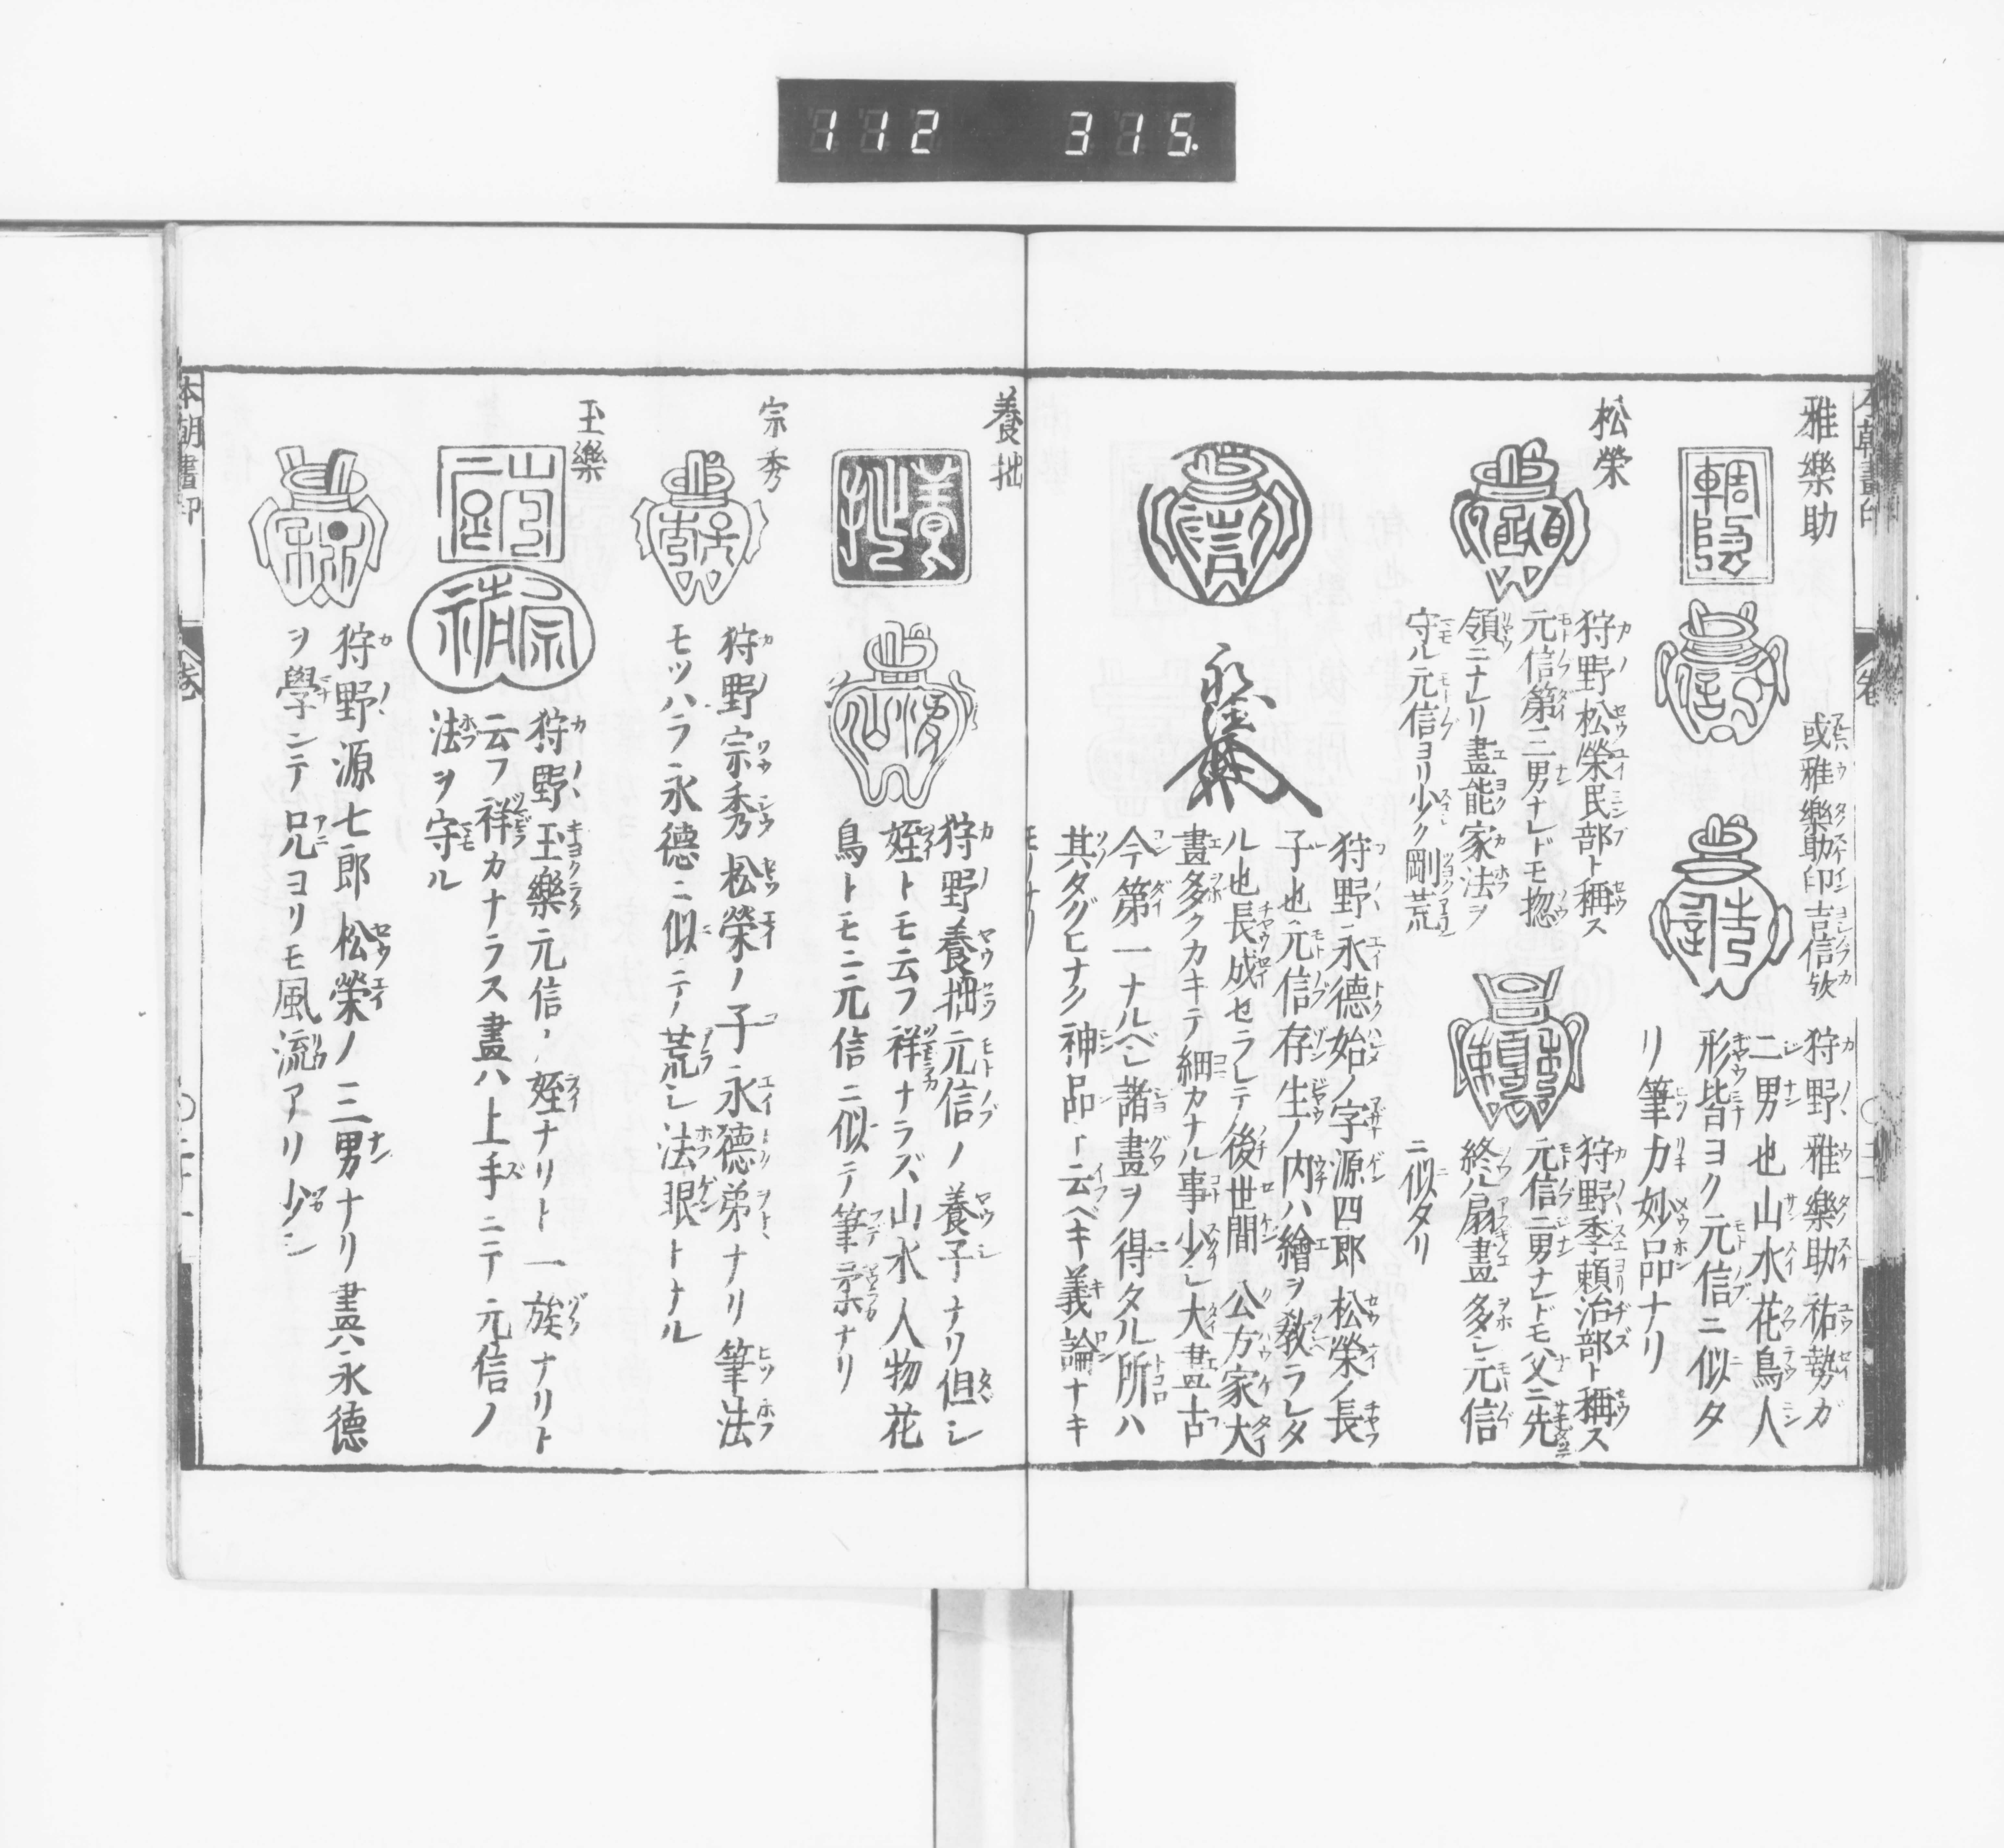 112 315.
本朝畫印
雅樂助
或雅樂助印吉信欤
狩野雅樂助祐勢ガ
二男也山水花鳥人
形皆ヨク元信ニ似タ
リ筆力妙品ナリ
松榮
狩野松榮民部ト稱ス
元信第三男ナレドモ惣
領ニナレリ畫能家法ヲ
守ル元信ヨリ少ク剛荒
狩野季頼治部ト稱ス
元信二男ナレドモ父ニ先
終ル扇畫多シ元信
ニ似タリ
狩野永德始ノ字源四郎松榮ノ長
子也元信存生ノ内ハ繪ヲ敎ラレタ
ル也長成セラレテ後世間公方家大
畫多クカキテ細カナル事少シ大畫古
今第一ナルベシ諸畫ヲ得タル所ハ
其タグヒナク神品ト云ベキ義論ナキ
モノナリ
養拙
狩野養拙元信ノ養子ナリ但シ
姪トモ云フ祥ナラズ山水人物花
鳥トモニ元信ニ似テ筆柔ナリ
宗秀
狩野宗秀松榮ノ子永德弟ナリ筆法
モツハラ永德ニ似テ荒シ法眼トナル
玉樂
狩野玉樂元信ノ姪ナリト一族ナリト
云フ祥カナラス畫ハ上手ニテ元信ノ
法ヲ守ル
狩野源七郎松榮ノ三男ナリ畫ハ永德
ヲ學ンテ兄ヨリモ風流アリ少シ
本朝畫印